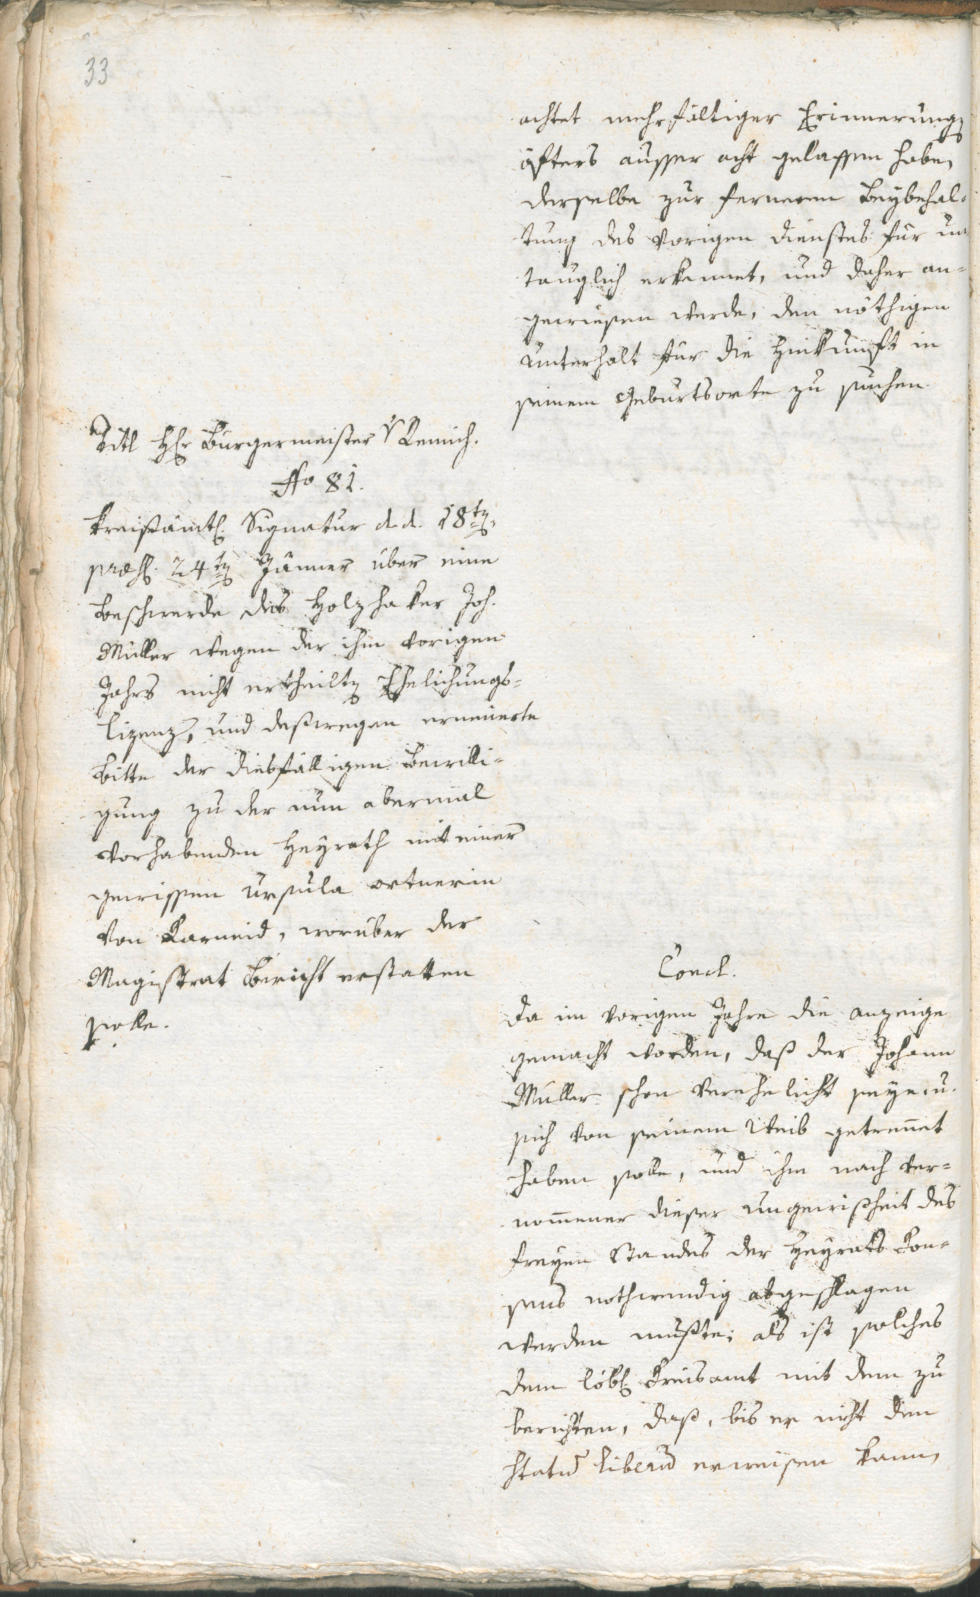 33
achtet mehrfältiger Erinnerung
öfters ausser acht gelassen habe,
derselbe zur ferneren Beybehal-
tung des vorigen Dienstes für un
tauglich erkennet, und daher an-
gewiesen werde, den nöthigen
Unterhalt für die Hinkunft in
seinem Geburtsorte zu suchen.
Titl H: Burgermeister v Remich.
No 81.
Kreisämtl. Signatur d. d. 18ten,
præs. 24ten Jänner über eine
Beschwerde des Holzhaker Joh.
Müller wegen der ihm vorigen
Jahrs nicht ertheilten Ehelichungs-
lizenz, und deßwegen erneuerte
Bitte der diesfälligen Bewilli-
gung zu der nun abermal
vorhabenden Heyrath mit einer
gewissen Ursula ortnerin
von Karneid, worüber der
Magistrat Bericht erstatten
solle.
Concl.
Da im vorigen Jahre die anzeige
gemacht worden, daß der Johann
Müller schon verehelicht seye u.
sich von seinem Weib getrennet
haben solle, und ihm nach ver-
nommener dieser Ungewißheit des
freyen Standes der Heyraths Kon-
sens nothwendig abgeschlagen
werden mußte; als ist solches
dem löbl. Kreisamt mit dem zu
berichten, daß, bis er nicht den
statum liberum erweisen kann,